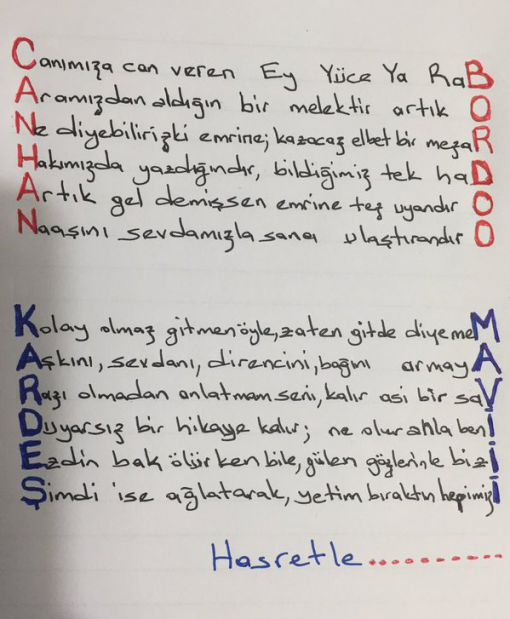 Canımıza can veren Ey Yüce Ya RaB
Aramızdan aldığın bir melektir artık O
Ne diyebilirizki emrine; kazacaz elbet bir mezaR
Hakımızda yazdığındır, bildiğimiz tek haD
Artık gel demişsen emrine tez uyandır O
Naaşını sevdamızla sana ulaştırandır O
Kolay olmaz gitmen öyle, zaten gitde diyemeM
Aşkını, sevdanı, direncini, bağını armayA
Razı olmadan anlatmam seni, kalır asi bir saV
Duyarsız bir hikaye kalır; ne olur ahla benİ
Ezdin bak ölürken bile, gülen gözlerinle bizİ
Şimdi ise ağlatarak, yetim bıraktın hepimizİ
Hasretle..........